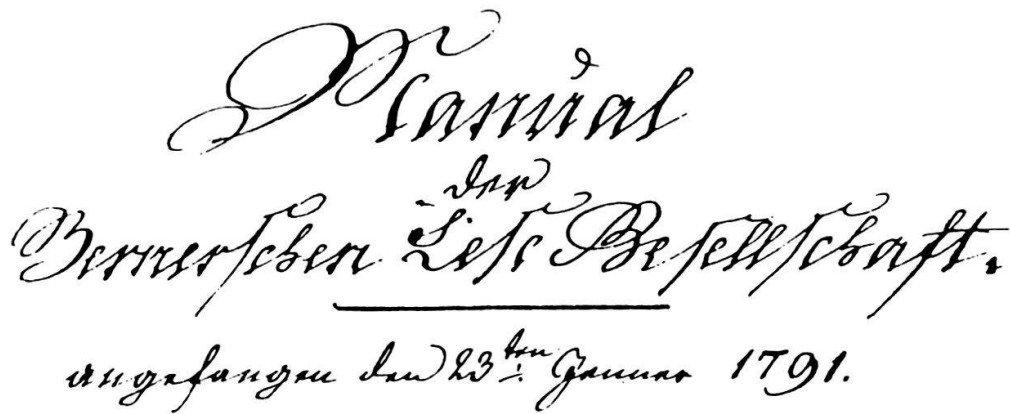 Manual
der
Bernerschen Lese Gesellschaft.
angefangen den 23ten Jenner 1791.